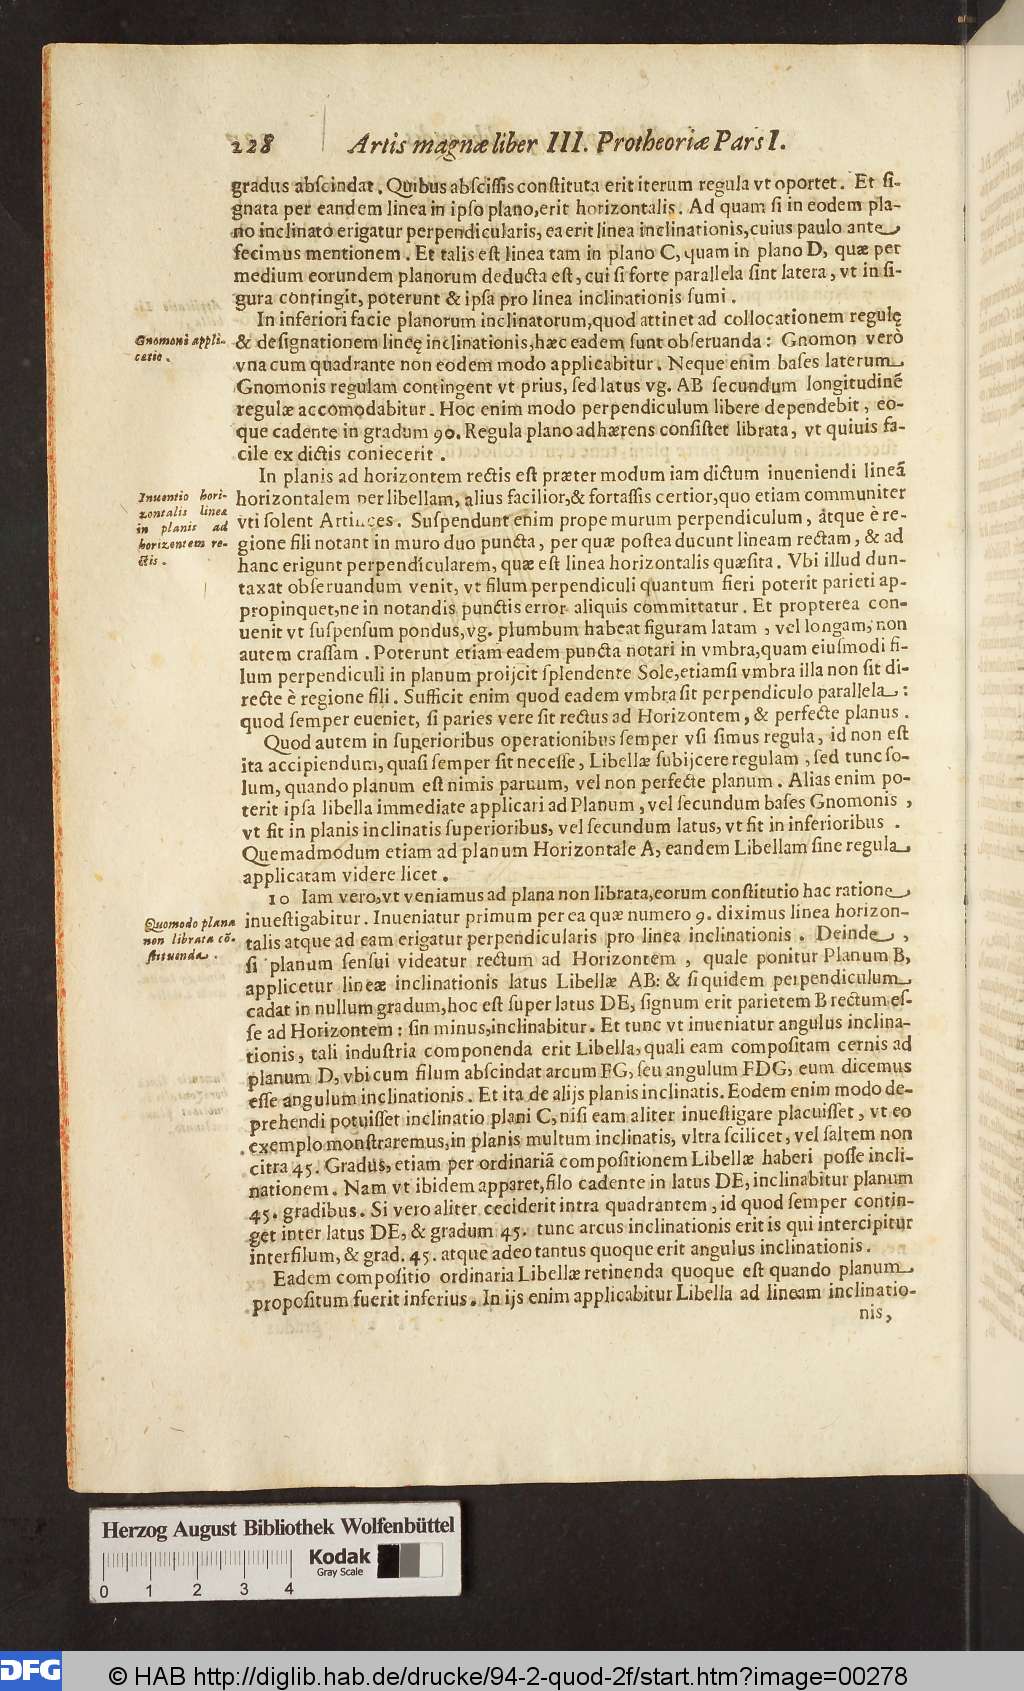 228 Artis magnæ liber III. Protheoriæ Pars I.
gradus abſcindat. Quibus abſciſſis conſtituta erit iterum regula vt oportet. Et ſi-
gnata per eandem linea in ipſo plano, erit horizontalis. Ad quam ſi in eodem pla-
no inclinato erigatur perpendicularis, ea erit linea inclinationis, cuius paulo ante
fecimus mentionem. Et talis eſt linea tam in plano C, quam in plano D, quæ per
medium eorundem planorum deducta eſt, cui ſi forte parallela ſint latera, vt in fi-
gura contingit, poterunt & ipſa pro linea inclinationis ſumi.
In inferiori facie planorum inclinatorum, quod attinet ad collocationem regulę
Gnomonis appli-
catio.
& deſignationem lineę inclinationis, hæc eadem ſunt obſeruanda: Gnomon vero
vna cum quadrante non eodem modo applicabitur. Neque enim baſes laterum
Gnomonis regulam contingent vt prius, ſed latus vg. AB ſecundum longitudinē
regulæ accomodabitur. Hoc enim modo perpendiculum libere dependebit, eo-
que cadente in gradum 90. Regula plano adhærens conſiſtet librata, vt quiuis fa-
cile ex dictis coniecerit.
In planis ad horizontem rectis eſt præter modum iam dictum inueniendi lineā
Inuentio hori-
zontalis linea
in planis ad
horizontem re-
ctis.
horizontalem per libellam, alius facilior, & fortaſſis certior, quo etiam communiter
vti ſolent Artifices. Suſpendunt enim prope murum perpendiculum, atque è re-
gione fili notant in muro duo puncta, per quæ poſtea ducunt lineam rectam, & ad
hanc erigunt perpendicularem, quæ eſt linea horizontalis quæſita. Vbi illud dun-
taxat obſeruandum venit, vt filum perpendiculi quantum fieri poterit parieti ap-
propinquet, ne in notandis punctis error aliquis committatur. Et propterea con-
uenit vt ſuſpenſum pondus, vg. plumbum habeat figuram latam, vel longam, non
autem craſſam. Poterunt etiam eadem puncta notari in vmbra, quam eiuſmodi fi-
lum perpendiculi in planum proijcit ſplendente Sole, etiamſi vmbra illa non ſit di-
recte è regione fili. Sufficit enim quod eadem vmbra ſit perpendiculo parallela:
quod ſemper eueniet, ſi paries vere ſit rectus ad Horizontem, & perfecte planus.
Quod autem in ſuperioribus operationibus ſemper vſi ſimus regula, id non eſt
ita accipiendum, quaſi ſemper ſit neceſſe, Libellæ ſubijcere regulam, ſed tunc ſo-
lum, quando planum eſt nimis paruum, vel non perfecte planum. Alias enim po-
terit ipſa libella immediate applicari ad Planum, vel ſecundum baſes Gnomonis,
vt fit in planis inclinatis ſuperioribus, vel ſecundum latus, vt fit in inferioribus.
Quemadmodum etiam ad planum Horizontale A, eandem Libellam ſine regula
applicatam videre licet.
10 Iam vero, vt veniamus ad plana non librata, eorum conſtitutio hac ratione
Quomodo plana
non librata cō-
ſtituenda.
inueſtigabitur. Inueniatur primum per ea quæ numero 9. diximus linea horizon-
talis atque ad eam erigatur perpendicularis pro linea inclinationis. Deinde,
ſi planum ſenſui videatur rectum ad Horizontem, quale ponitur Planum B,
applicetur lineæ inclinationis latus Libellæ AB: & ſiquidem perpendiculum
cadat in nullum gradum, hoc eſt ſuper latus DE, ſignum erit parietem B rectum eſ-
ſe ad Horizontem: ſin minus, inclinabitur. Et tunc vt inueniatur angulus inclina-
tionis, tali induſtria componenda erit Libella, quali eam compoſitam cernis ad
planum D, vbi cum filum abſcindat arcum FG, ſeu angulum FDG, eum dicemus
eſſe angulum inclinationis. Et ita de alijs planis inclinatis. Eodem enim modo de-
prehendi potuiſſet inclinatio plani C, niſi eam aliter inueſtigare placuiſſet, vt eo
exemplo monſtraremus, in planis multum inclinatis, vltra ſcilicet, vel ſaltem non
citra 45. Gradus, etiam per ordinariā compoſitionem Libellæ haberi poſſe incli-
nationem. Nam vt ibidem apparet, filo cadente in latus DE, inclinabitur planum
45. gradibus. Si vero aliter ceciderit intra quadrantem, id quod ſemper contin-
get inter latus DE, & gradum 45. tunc arcus inclinationis erit is qui intercipitur
inter filum, & grad. 45. atque adeo tantus quoque erit angulus inclinationis.
Eadem compoſitio ordinaria Libellæ retinenda quoque eſt quando planum
propoſitum fuerit inferius. In ijs enim applicabitur Libella ad lineam inclinatio-
nis,
Herzog August Bibliothek Wolfenbüttel
Kodak
Gray Scale
0 1 2 3 4
DFG © HAB http://diglib.hab.de/drucke/94-2-quod-2f/start.htm?image=00278